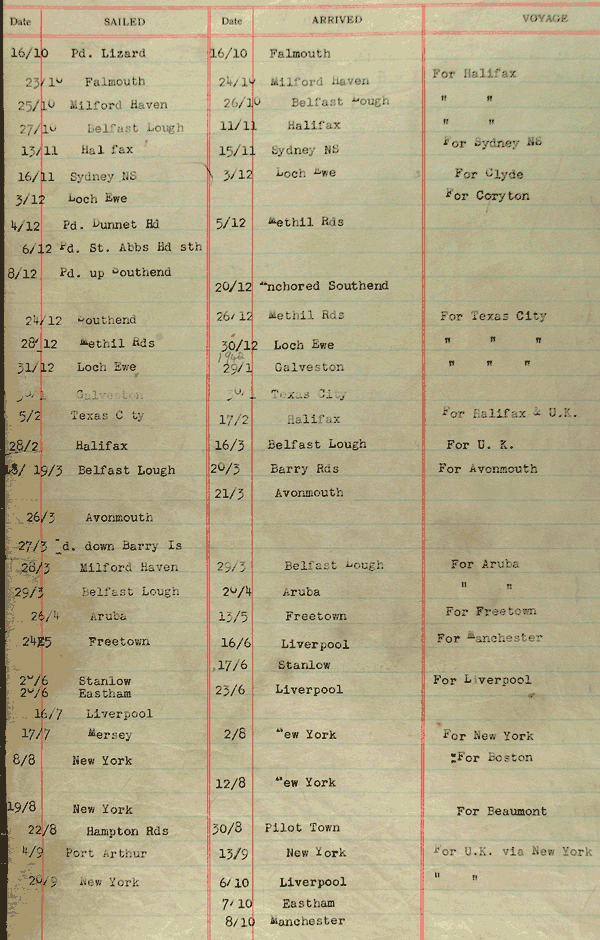 Date SAILED Date ARRIVED VOYAGE
16/10 Pd. Lizard 16/10 Falmouth
23/10 Falmouth 24/10 Milford Haven For Halifax
25/10 Milford Haven 26/10 Belfast Lough " "
27/10 Belfast Lough 11/11 Halifax " "
13/11 Hal fax 15/11 Sydney NS For Sydney NS
16/11 Sydney NS 3/12 Loch Ewe For Clyde
3/12 Loch Ewe For Coryton
4/12 Pd. Dunnet Hd 5/12 Methil Rds
6/12 Pd. St. Abbs Hd sth
8/12 Pd. up Southend
20/12 Anchored Southend
24/12 Southend 26/12 Methil Rds For Texas City
28/12 Methil Rds 30/12 Loch Ewe " " "
1942
31/12 Loch Ewe 29/1 Galveston " " "
30/1 Galveston 30/1 Texas City
5/2 Texas C ty 17/2 Halifax For Halifax & U.K.
28/2 Halifax 16/3 Belfast Lough For U. K.
18/ 19/3 Belfast Lough 20/3 Barry Rds For Avonmouth
21/3 Avonmouth
26/3 Avonmouth
27/3 Pd. down Barry Is
28/3 Milford Haven 29/3 Belfast Lough For Aruba
29/3 Belfast Lough 20/4 Aruba " "
26/4 Aruba 13/5 Freetown For Freetown
24/5 Freetown 16/6 Liverpool For Manchester
17/6 Stanlow
20/6 Stanlow For Liverpool
20/6 Eastham 23/6 Liverpool
16/7 Liverpool
17/7 Mersey 2/8 New York For New York
8/8 New York For Boston
12/8 New York
19/8 New York For Beaumont
22/8 Hampton Rds 30/8 Pilot Town
4/9 Port Arthur 13/9 New York For U.K. via New York
20/9 New York 6/10 Liverpool " "
7/10 Eastham
8/10 Manchester